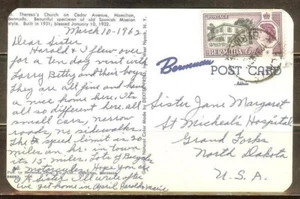 Theresa's Church on Cedar Avenue, Hamilton,
Bermuda. Beautiful specimen of old Spanish Mission
style. Built in 1931; blessed January 10, 1932.
March 10-1962
Dear Sister
Harold & I flew over
for a ten day visit with
Larry Betty and their boys
They are all fine and have
a nice home here, its
all so different here all
small cars, narrow
roads, no sidewalks.
The speed limit is 20
miles an hr. in town
its 15 miles. Lots of Bicycles
& motorcycles. Hope you are
O.K. Sister. Ill write after
we get home in April. Harold & Marie
Bermuda
POST CARD
BERMUDA
Sister Jane Margaret
St Michaels Hospital
Grand Forks
North Dakota
U.S.A.